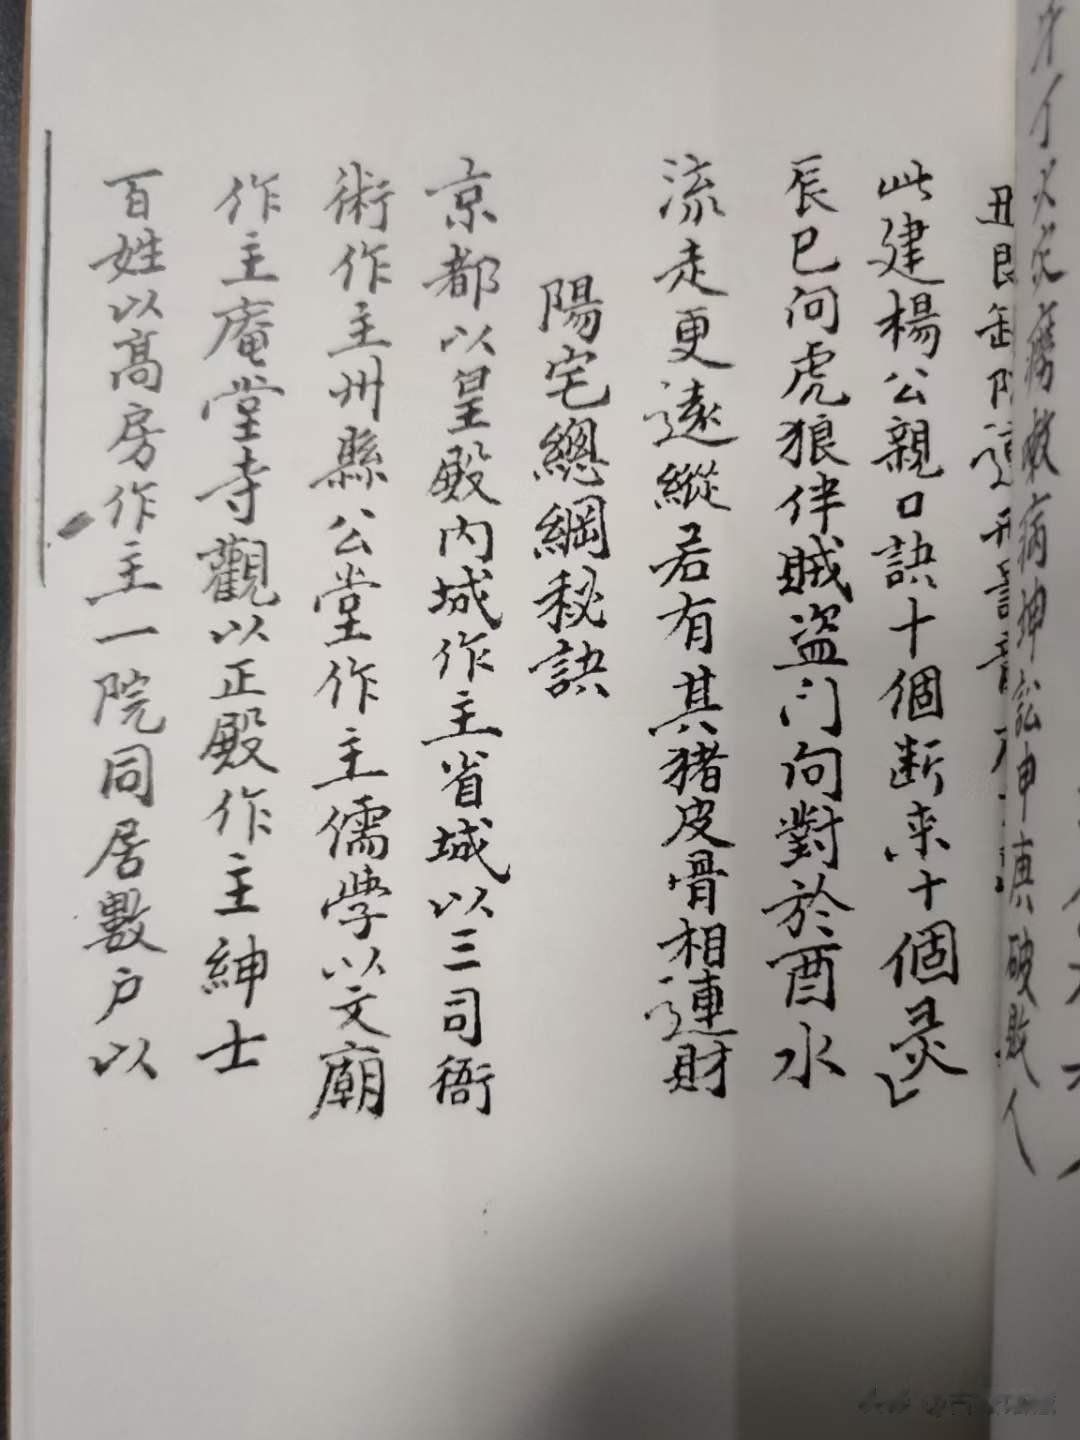 病坤訟申
破敗人
丑艮
此建楊公親口訣十個断来十個灵
辰巳向虎狼伴賊盗门向對於酉水
流走更遠縱若有其猪皮骨相連財
陽宅總綱秘訣
京都以皇殿内城作主省城以三司衙
術作主州縣公堂作主儒學以文廟
作主庵堂寺觀以正殿作主紳士
百姓以高房作主一院同居數户以